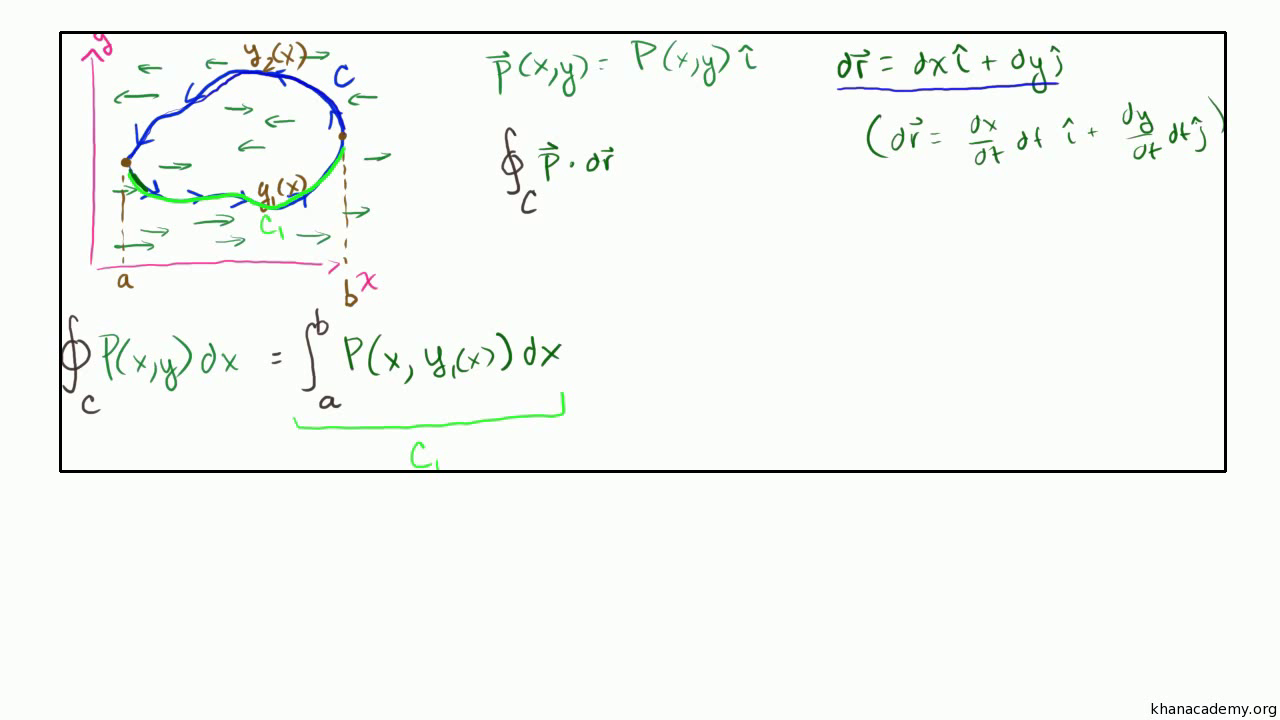 y
y₂(x)
C
y₁(x)
C₁
a
b
x
p⃗(x,y) = P(x,y) î
∮_C p⃗ · dr⃗
dr⃗ = dx î + dy ĵ
(dr⃗ = dx/dt dt î + dy/dt dt ĵ)
∮_C P(x,y) dx = ∫_a^b P(x, y₁(x)) dx
C₁
khanacademy.org